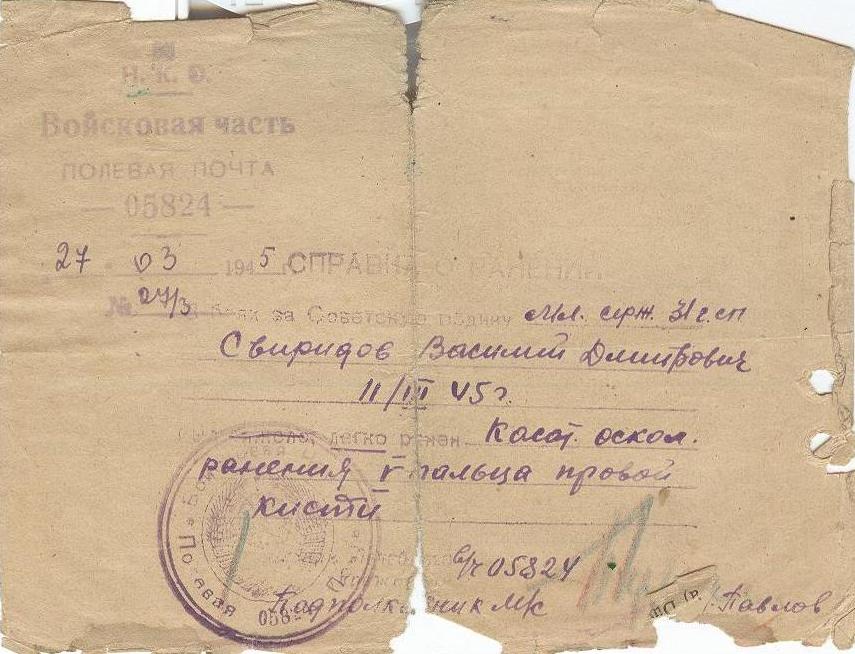 Н. К. О.
Войсковая часть
ПОЛЕВАЯ ПОЧТА
— 05824 —
27 03 1945 г. СПРАВКА О РАНЕНИИ.
№ 27/3 за Советскую родину Мл. серж. 31 г.сп
Свиридов Василий Дмитрович
11/III 45 г.
легко ранен. Касат. оскол.
ранения V пальца правой
кисти
в/ч 05824
Подполковник м/с Павлов
Полевая
05824